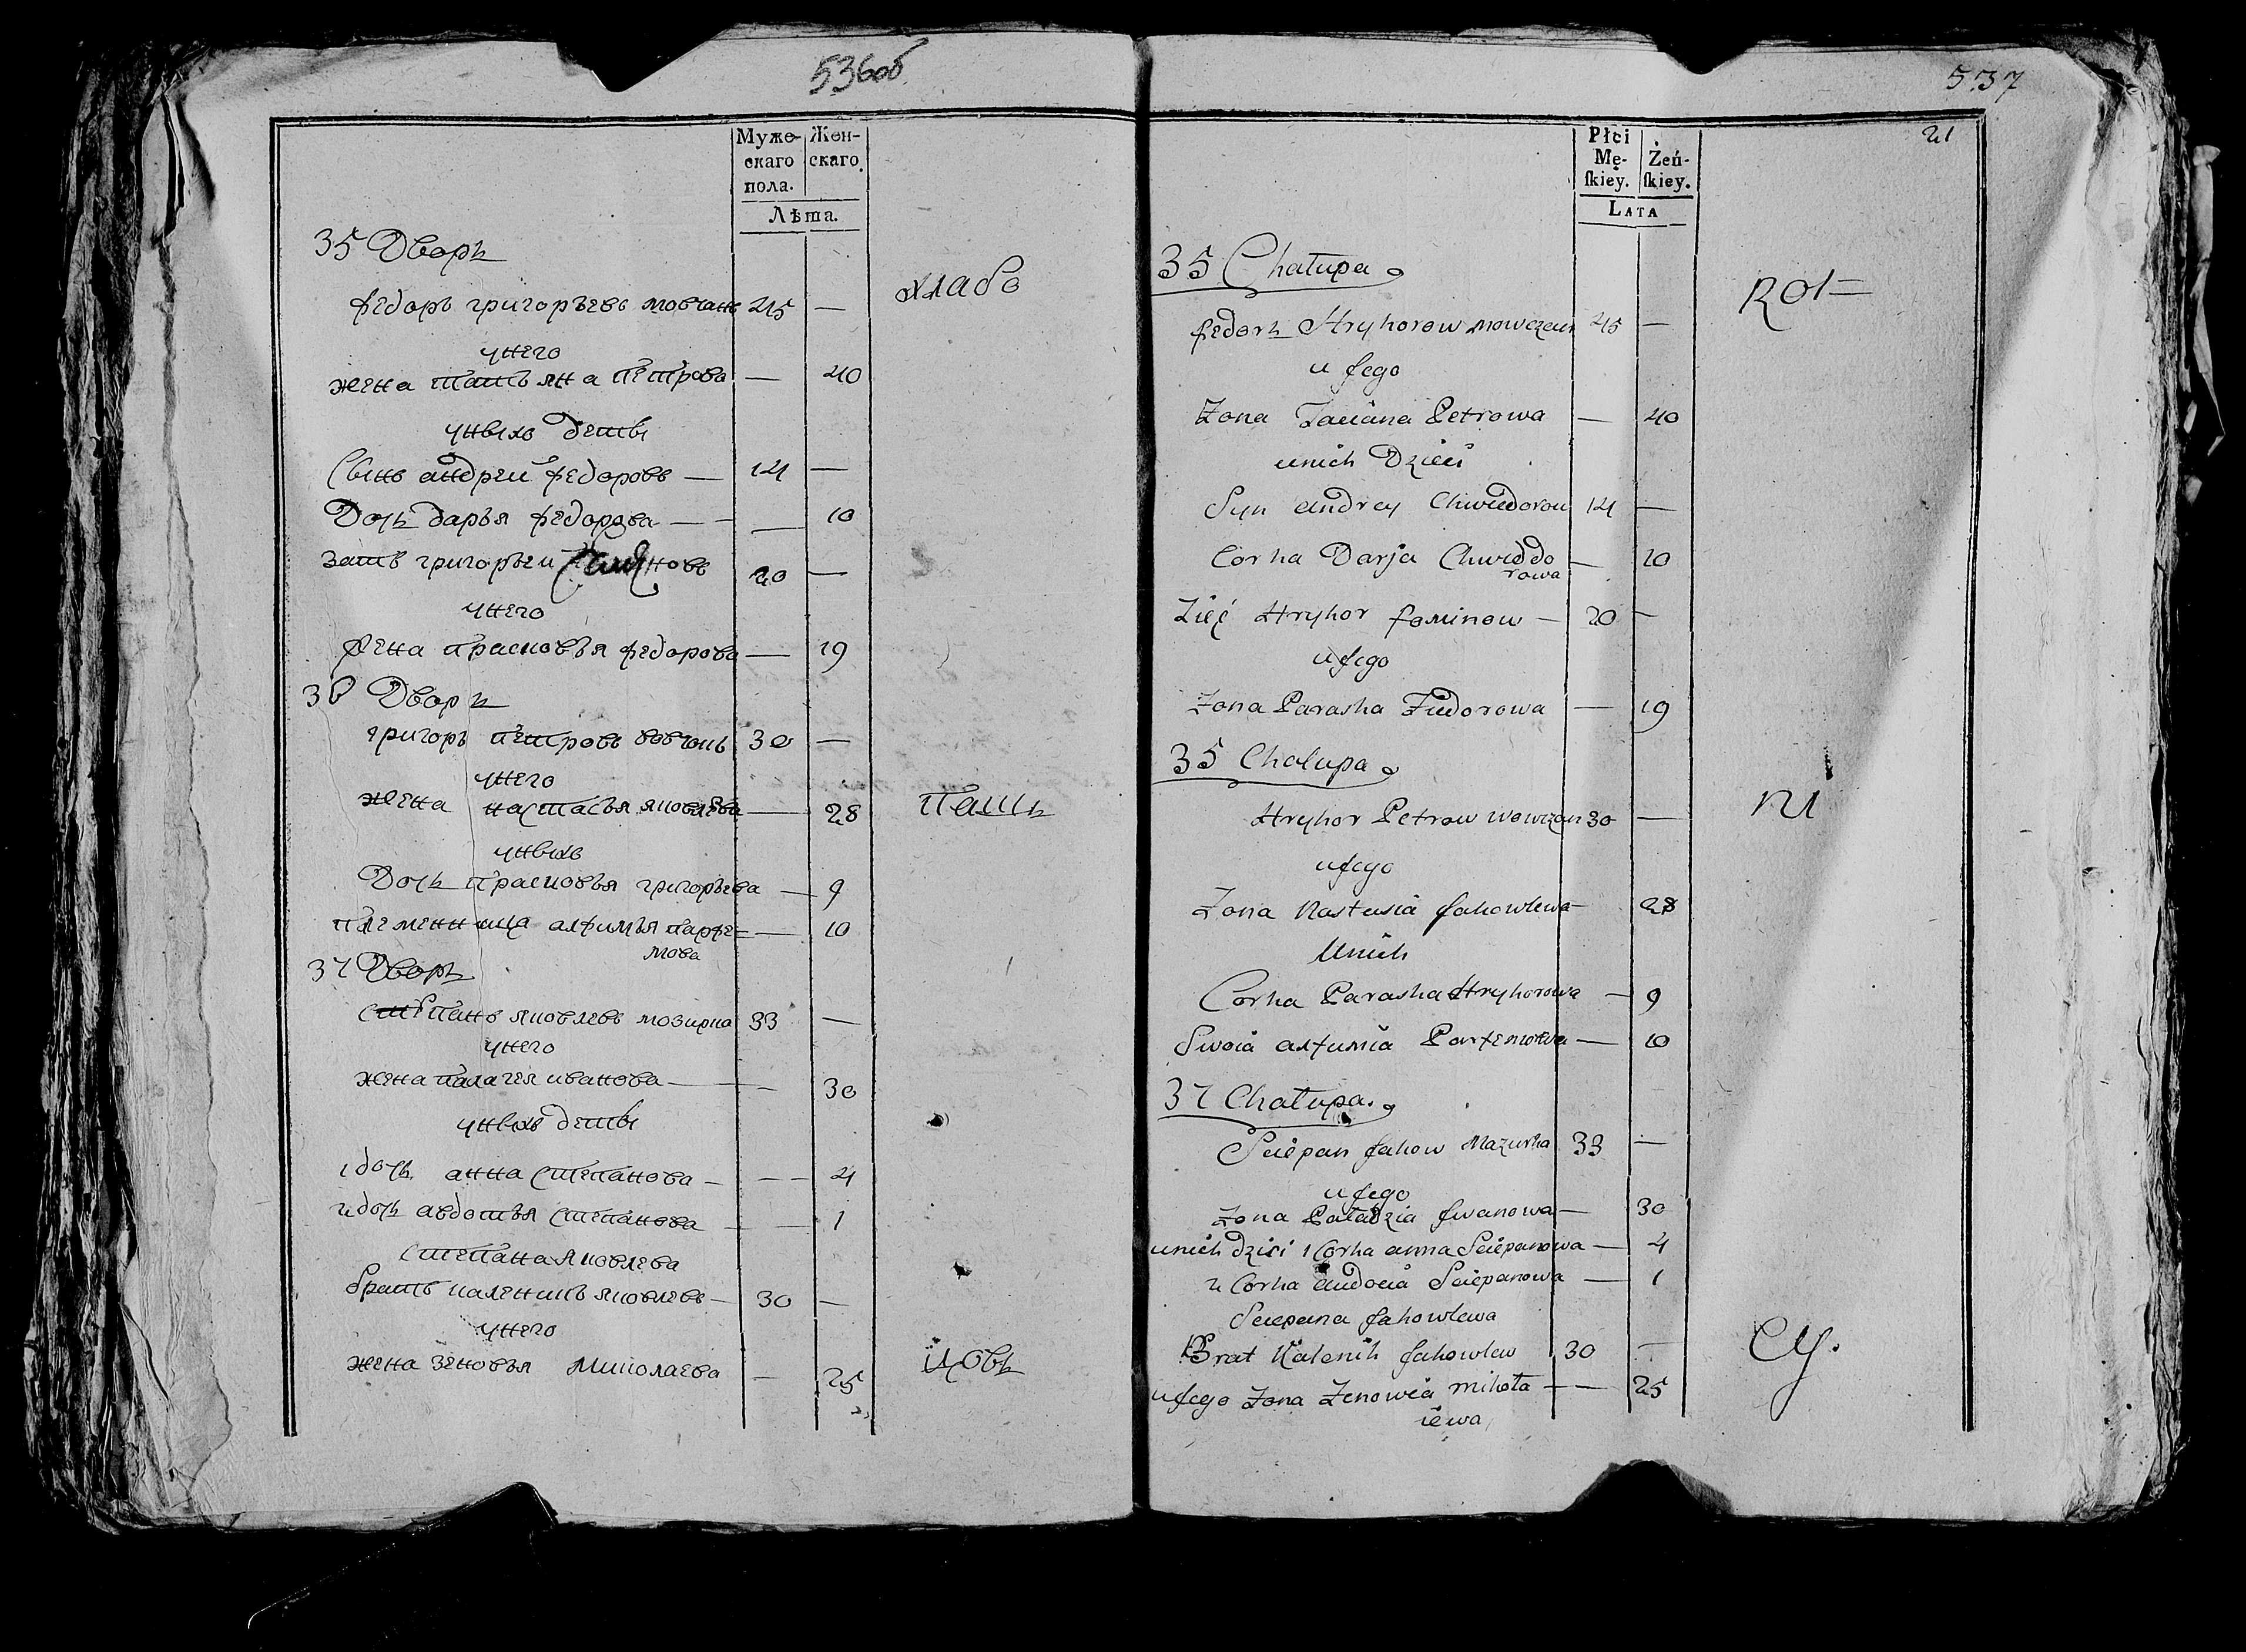 536 об
Муже- Жен-
скаго скаго.
пола.
Лѣта.
35 Дворъ
хлабо
федоръ григорьевъ мовчанъ 45 —
унего
жена татьяна петрова — 40
унихъ дети
Сынъ андрей федоровъ — 14 —
Дочь дарья федорова — — 10
зять григорьеи 20 —
унего
жена прасковья федорова — 19
36 Дворъ
григоръ петровъ вовчонь 30 —
унего
жена настасья яковлева — 28
пашъ
унихъ
Дочь прасковья григорьева — 9
племенница алфимья парфе= — 10
мова
37 Дворъ
степанъ яковлевъ мозирка 33 —
унего
жена палагея иванова — — 30
унихъ дети
1 дочь анна степанова — — — 4
2 дочь авдотья степанова — — 1
степана яковлева
братъ каленикъ яковлевъ — 30 —
унего
жена зеновья миколаева — 25
цовъ
537
21
Płci
Mę- Żeń-
ſkiey. ſkiey.
LATA
35 Chałupa
Rot=
fedorъ Hryhorow mowczan 45 —
u jego
Zona Taciana Petrowa — 40
unich Dzieci
Syn andrey Chwiedorow 14 —
Corka Darja Chwieddo — 10
rowa
Zięć Hryhor fominow — 20 —
ujego
Zona Paraska Fiedorowa — 19
35 Chalupa
ni
Hryhor Petrow wowczan 30 —
ujego
Zona Nastusia Jakowlewa — 28
Unich
Corka Paraska Hryhorowa — 9
Swoia alfumia Partemowa — 10
37 Chałupa.
Sciepan Jakow Mazurka 33 —
ujego
Zona Iwanowa — 30
unich dzieci 1 Corka anna Sciepanowa — 4
2 Corka audocia Sciepanowa — 1
Sciepana Jakowlewa
Brat Kalenik Jakowlew 30 —
Cy.
ujego Zona Zenowia mikoła — — 25
iewa